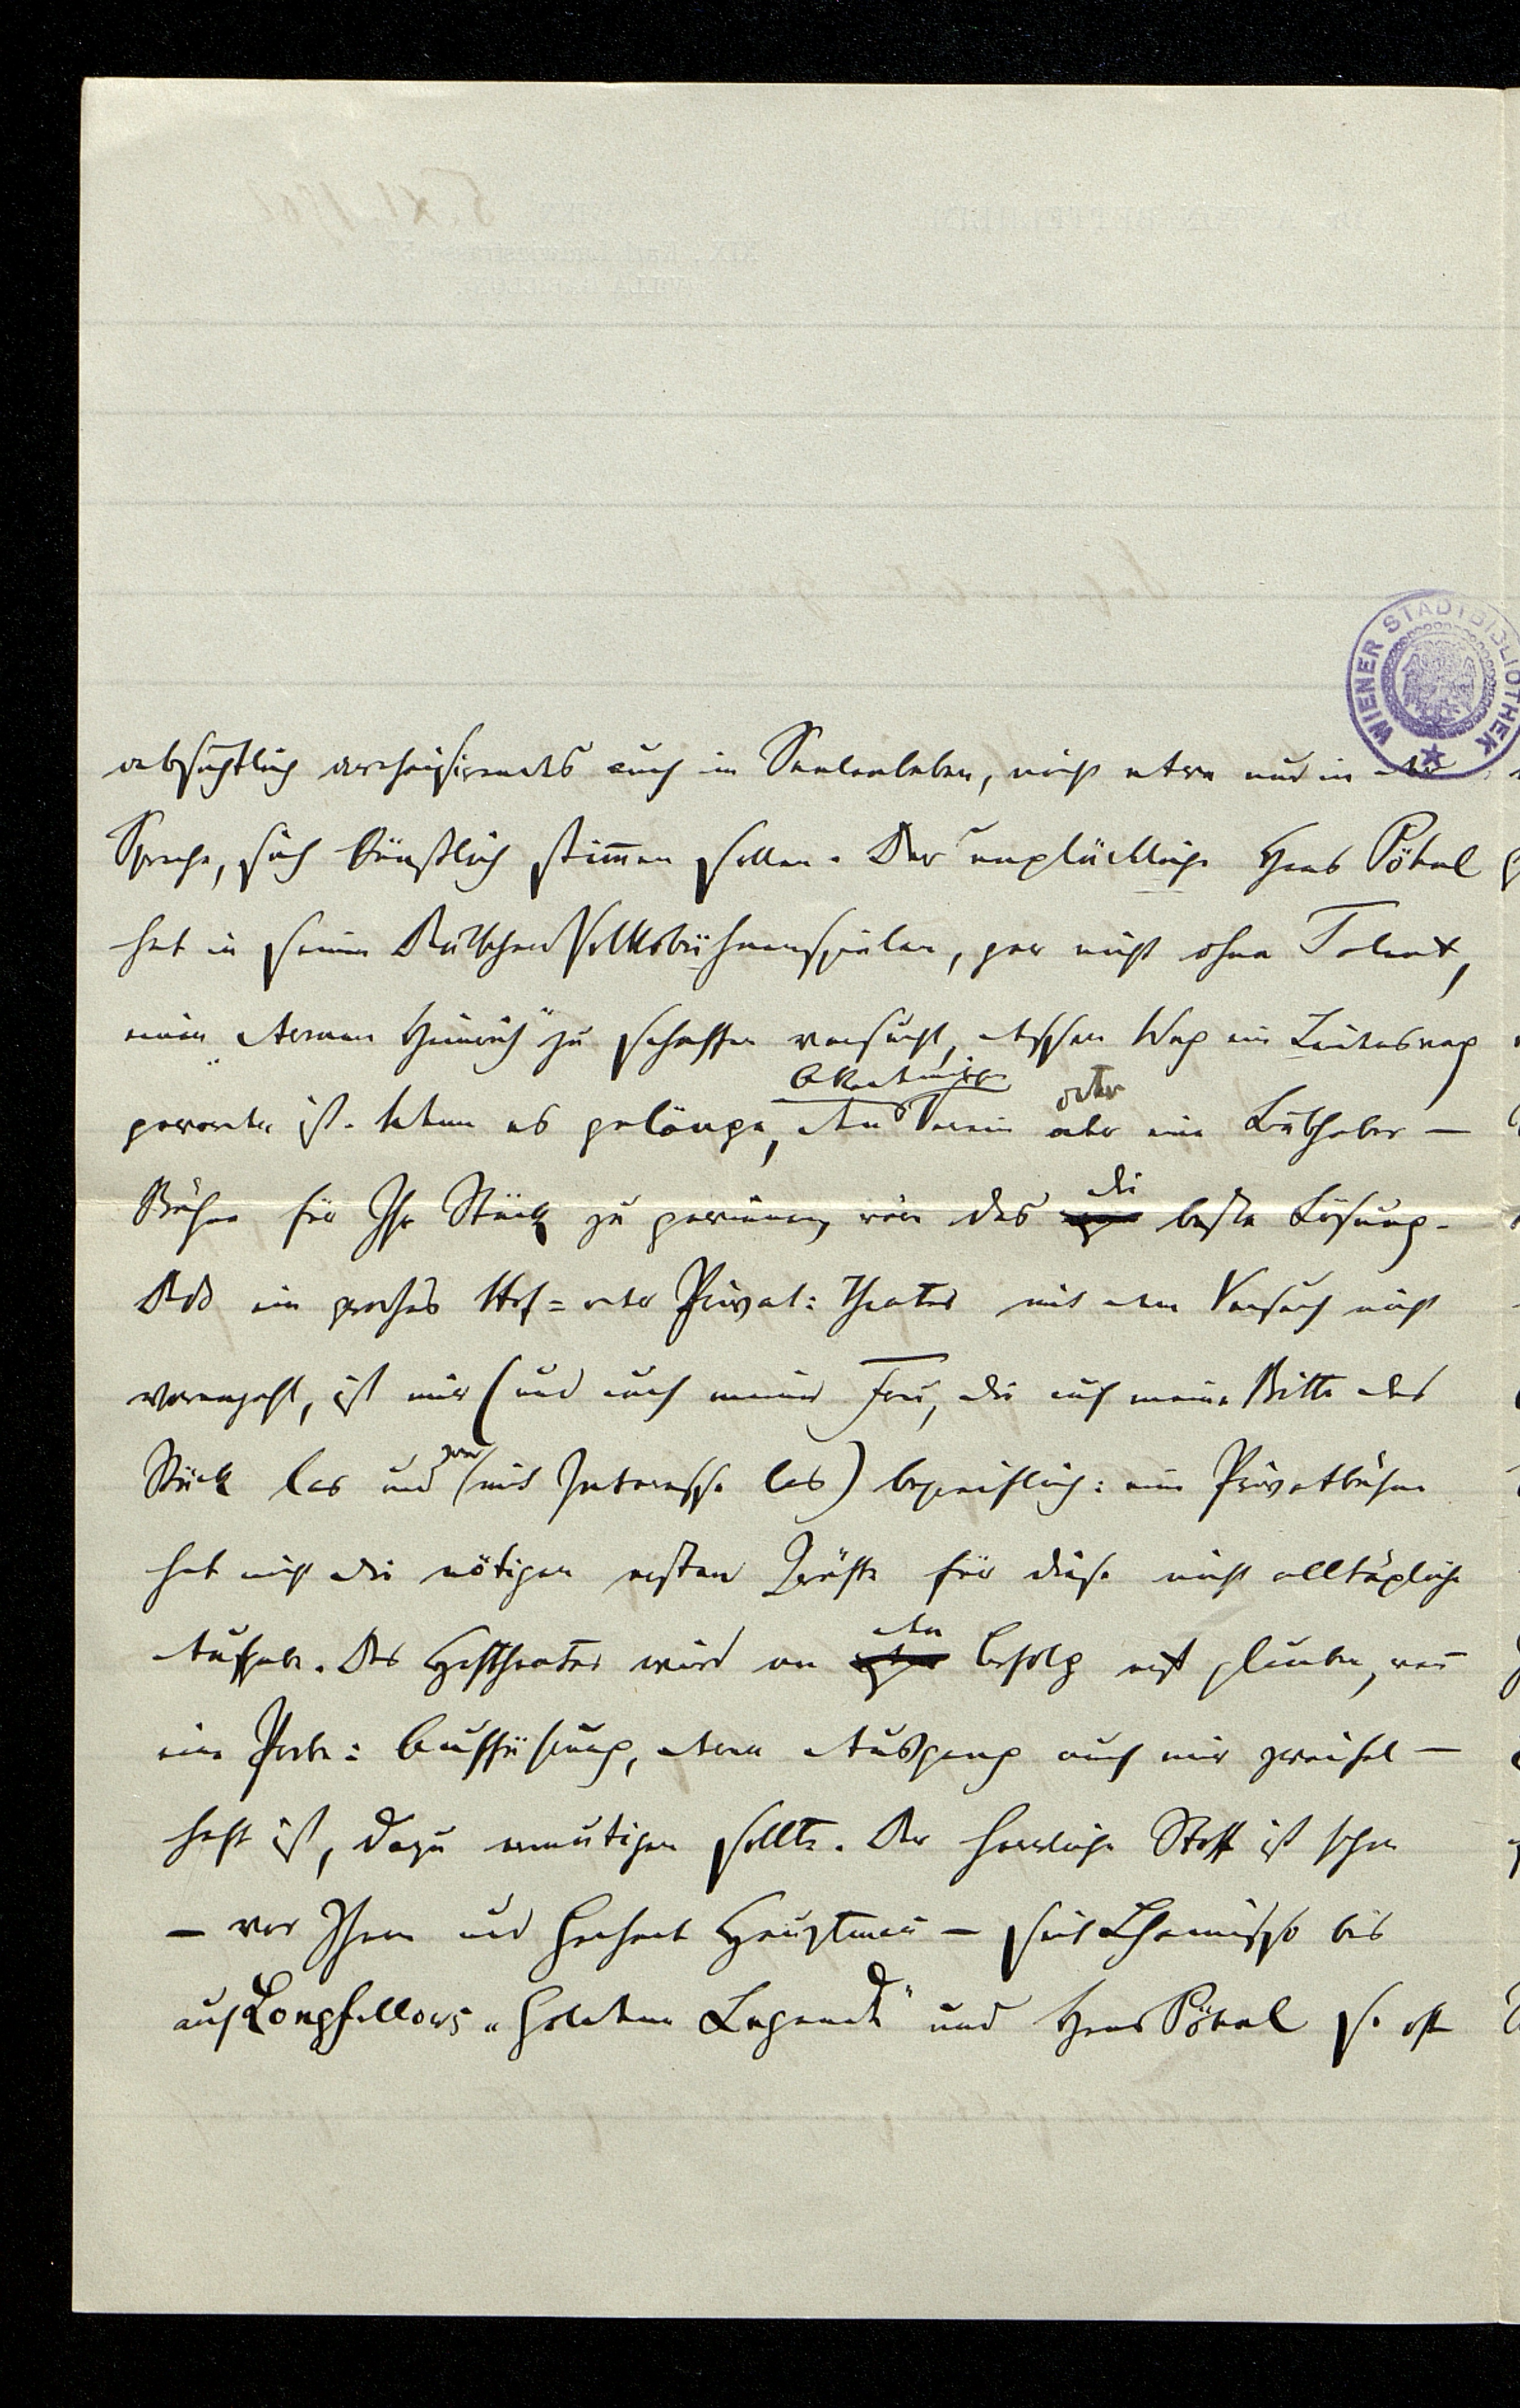 WIENER STADTBIBLIOTHEK
absichtlich archaisirendes auch im Seelenleben, nicht etwa nur in der
Sprache, sich künstlich stimmen sollen. Der unglückliche Hans Pöhnl
hat in seinen Deutschen Volksbühnenspielen, gar nicht ohne Talent,
einen „Armen Heinrich" zu schaffen versucht, dessen Weg ein Leidensweg
geworden ist. Wenn es gelänge, den Verein oder eine Liebhaber-
Bühne für Ihr Stück zu gewinnen, wäre das die beste Lösung.
Daß ein großes Hof= oder Privat=Theater mit dem Versuch nicht
vorangeht, ist mir (und auch meiner Frau, die auf meine Bitte das
Stück las und zwar mit Interesse las) begreiflich: eine Privatbühne
hat nicht die nötigen ersten Kräfte für diese nicht alltägliche
Aufgabe. Das Hoftheater wird an den Erfolg erst glauben, wenn
eine Probe=Aufführung, deren Ausgang auch mir zweifel-
haft ist, dazu ermutigen sollte. Der herrliche Stoff ist schon
- vor Ihnen und Gerhart Hauptmann - seit Chamisso bis
auf Longfellows „Goldene Legende" und Hans Pöhnl so oft